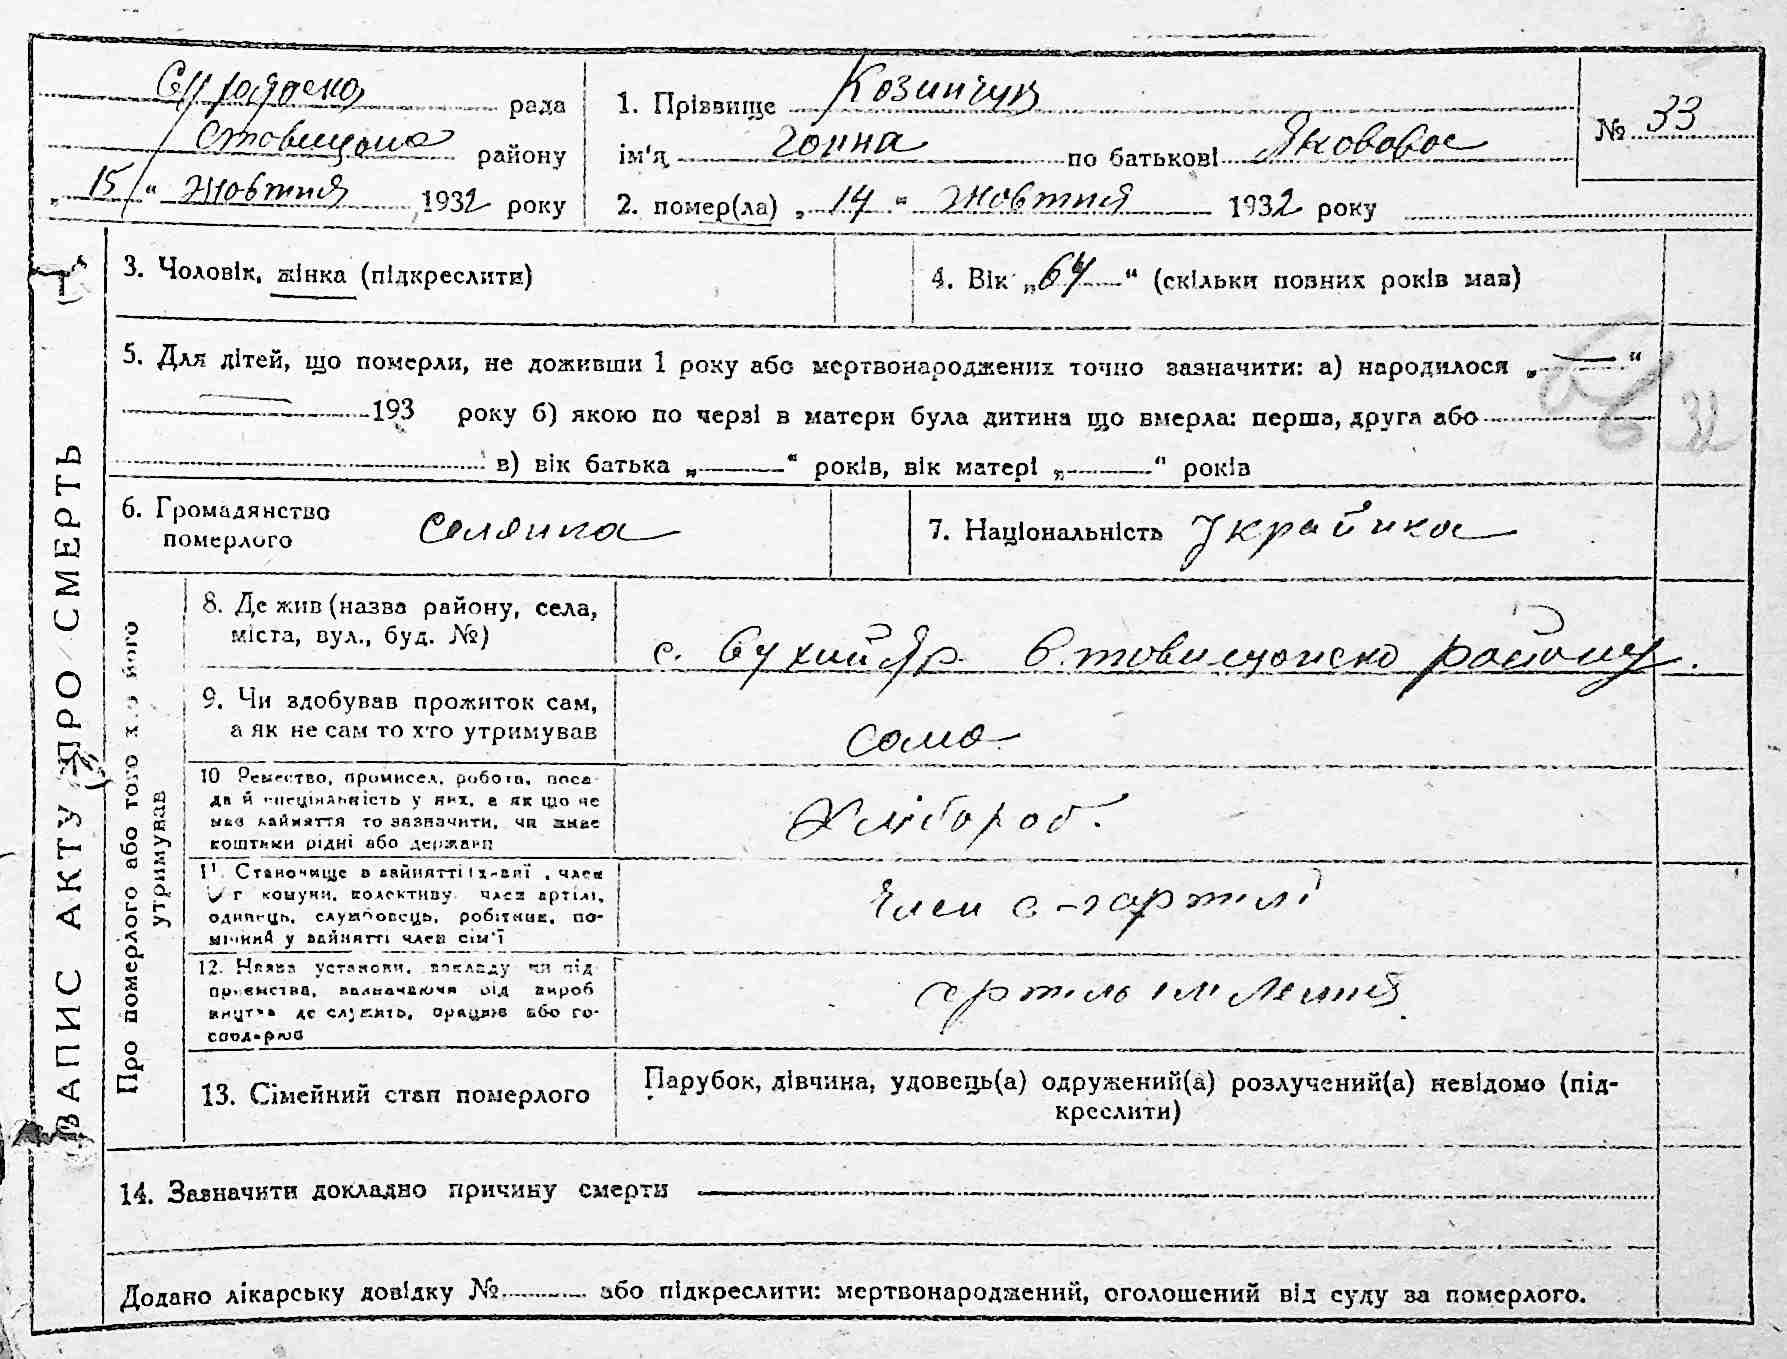 рада
району
„15“ жовтня 1932 року
1. Прізвище Козинчук
ім'я Ганна по батькові Яковова
№ 33
2. помер(ла) „14“ жовтня 1932 року
3. Чоловік, жінка (підкреслити)
4. Вік „64“ (скільки повних років мав)
5. Для дітей, що померли, не доживши 1 року або мертвонароджених точно зазначити: а) народилося „—“
193 року б) якою по черзі в матери була дитина що вмерла: перша, друга або
в) вік батька „—“ років, вік матері „—“ років
6. Громадянство
померлого
селянка
7. Національність Українка
ЗАПИС АКТУ ПРО СМЕРТЬ
Про померлого або того хто його
утримував
8. Де жив (назва району, села,
міста, вул., буд. №)
с. Сухий Яр Ставищанско району.
9. Чи здобував прожиток сам,
а як не сам то хто утримував
сама
10 Ремество, промисел, робота, поса-
да й спеціяльність у них, а як що не
мав зайняття то зазначити, чи живе
коштами рідні або держави
Хлібороб.
11. Становище в зайнятті (х-вні, член
с-г комуни, колективу, член артілі,
одинець, службовець, робітник, по-
мічний у зайнятті член сім'ї
Член с-г артілі
12. Назва установи, закладу чи під-
приємства, зазначаючи від вироб
ництва де служить, працює або го-
сподарює
артиль ім Леніна
13. Сімейний стан померлого
Парубок, дівчина, удовець(а) одружений(а) розлучений(а) невідомо (під-
креслити)
14. Зазначити докладно причину смерти
Додано лікарську довідку № або підкреслити: мертвонароджений, оголошений від суду за померлого.